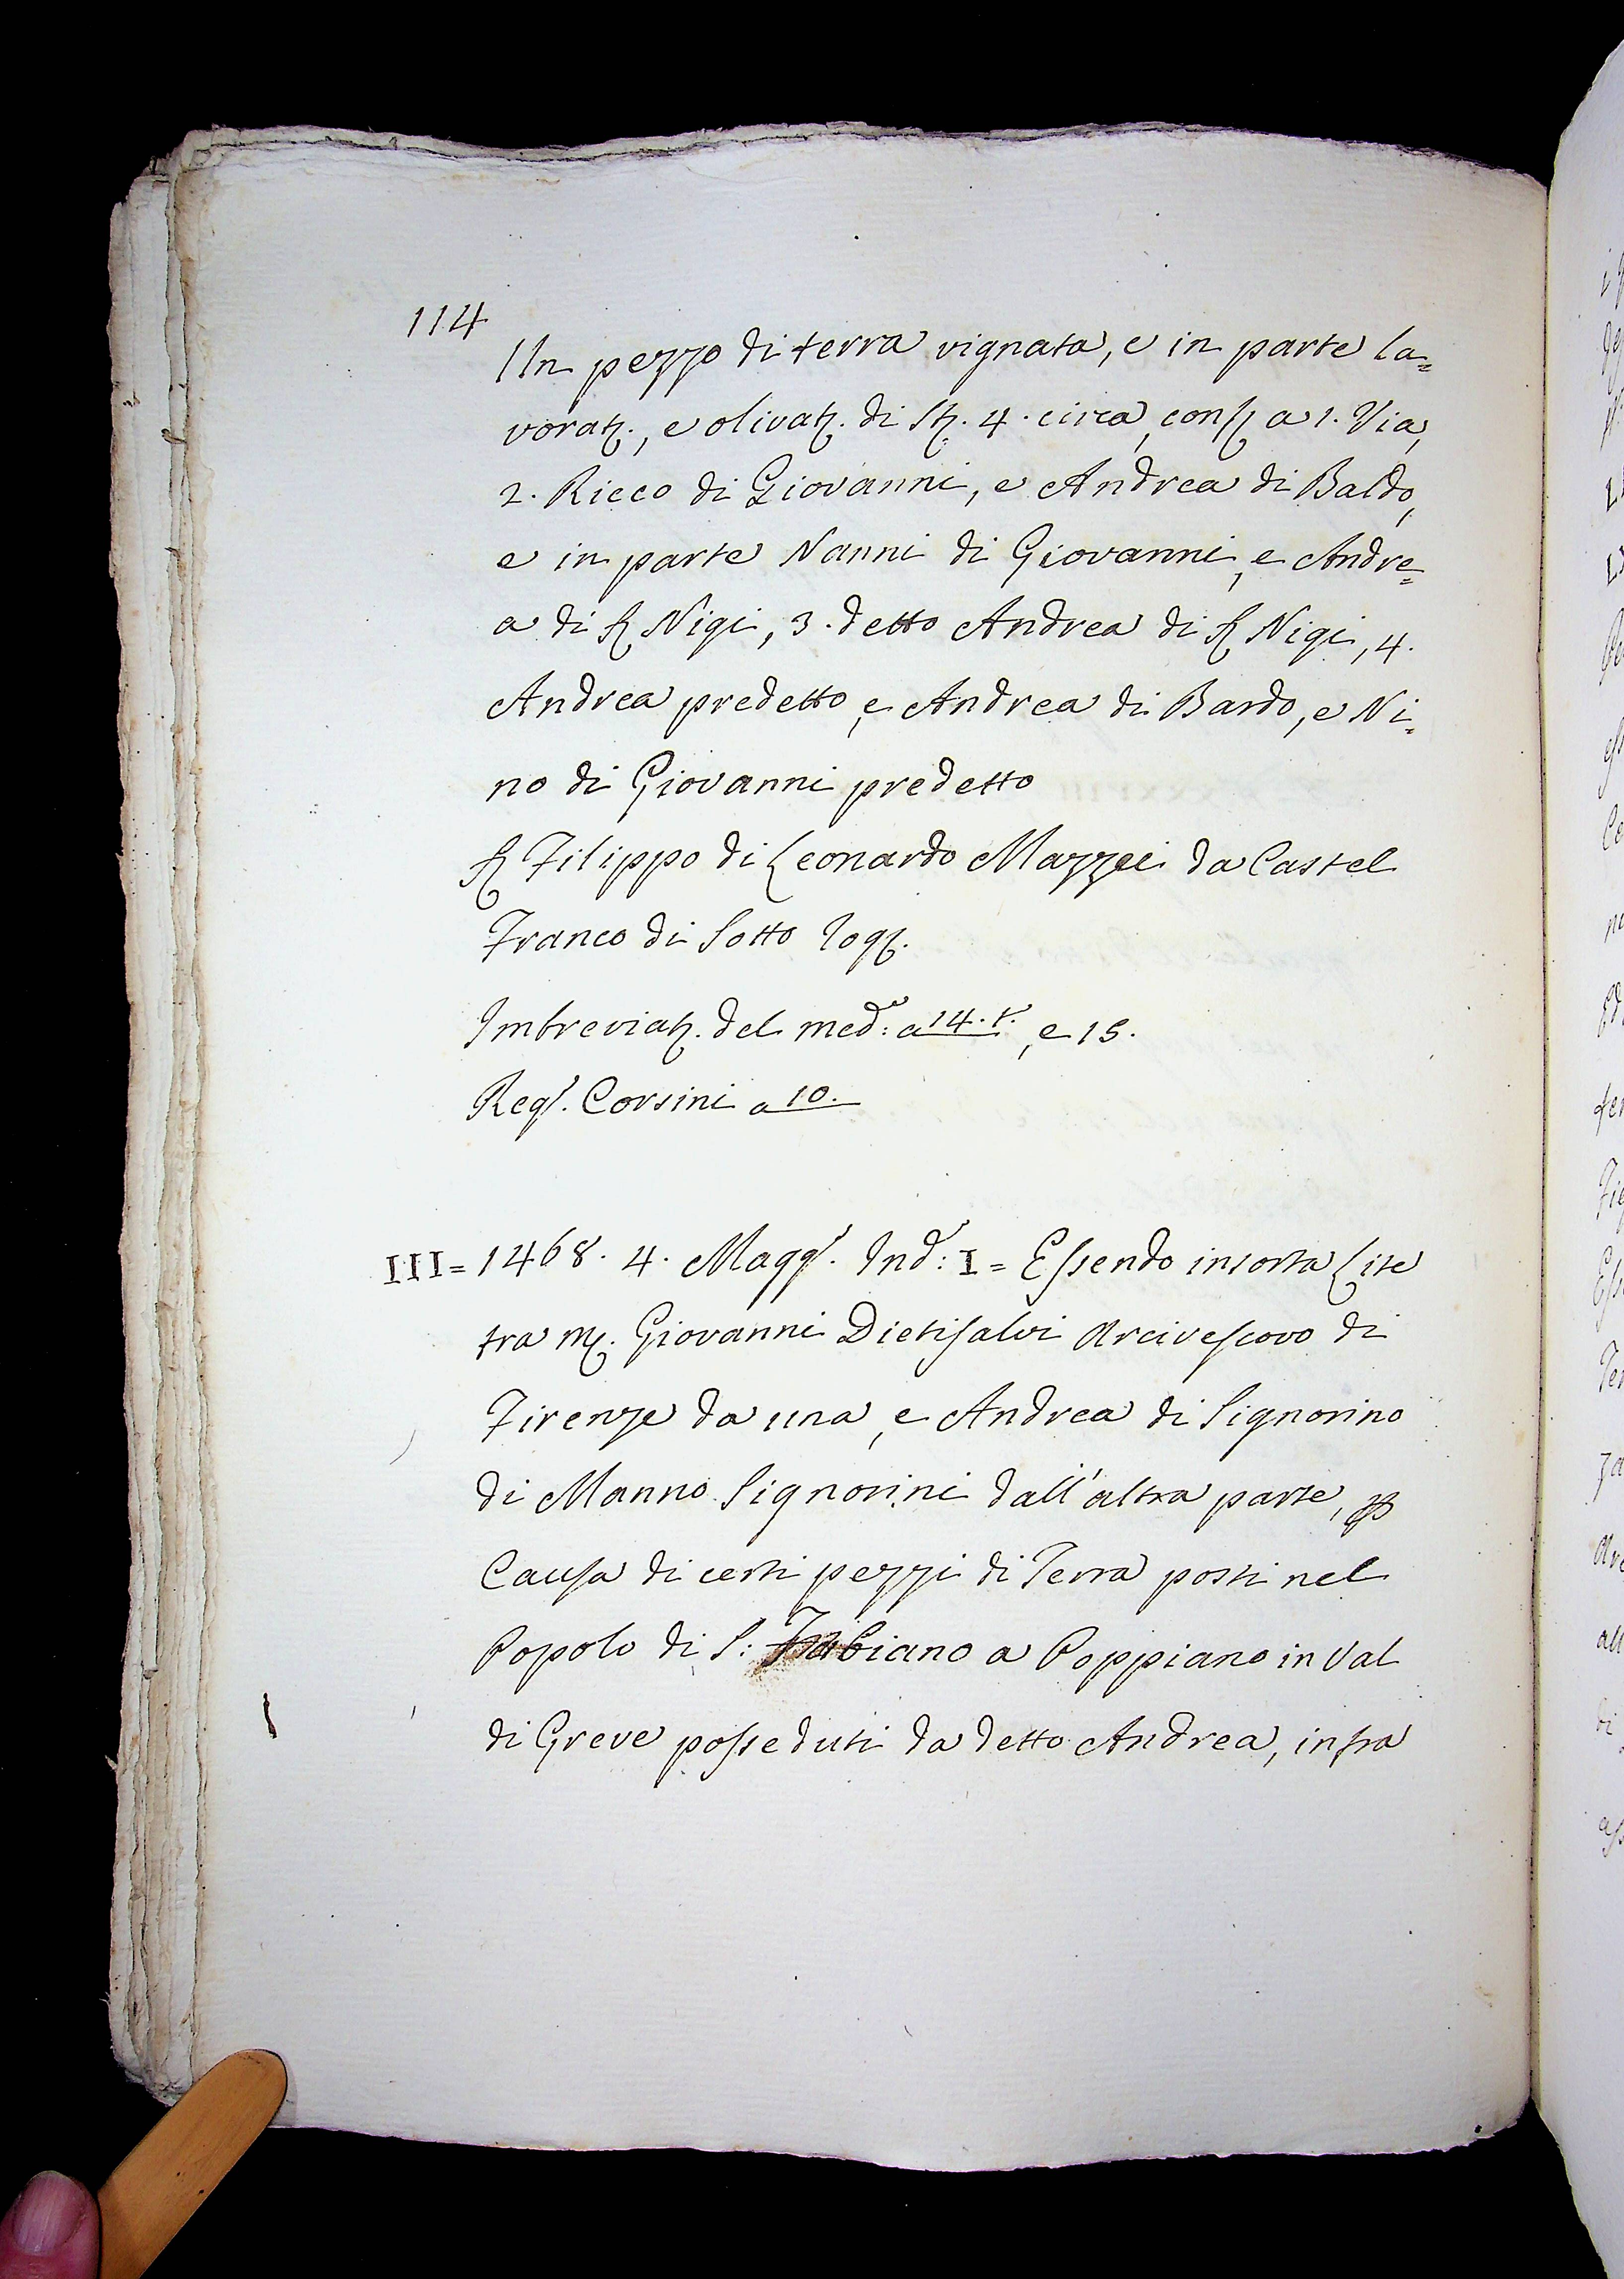 114
Un pezzo di terra vignata, e in parte la=
vorat., e olivat. di St. 4. circa, conf. a 1. Via,
2. Ricco di Giovanni, e Andrea di Baldo,
e in parte Nanni di Giovanni, e Andre=
a di S. Nigi, 3. detto Andrea di S. Nigi, 4.
Andrea predetto, e Andrea di Bardo, e Ni=
no di Giovanni predetto
S. Filippo di Leonardo Mazzei da Castel
Franco di Sotto rog.
Imbreviat. del med.o: a 14. t., e 15.
Reg.o Corsini a 10.
III = 1468. 4. Magg.o Ind.e: I = Essendo insorta Lite
tra M. Giovanni Dietisalvi Arcivescovo di
Firenze da una, e Andrea di Signorino
di Manno Signorini dall'altra parte, p
Causa di certi pezzi di Terra posti nel
Popolo di S: Fabiano a Poppiano in Val
di Greve posseduti da detto Andrea, infra